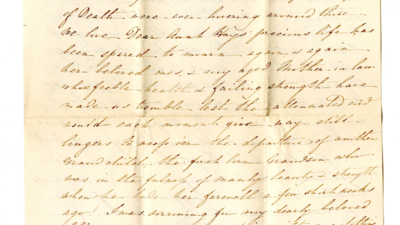 of Death were ever hovering around this
We live Dear Aunt Hays' precious life has
been spared to mourn again & again
her beloved ones, & my aged Mother in law
whose feeble health & failing strength have
made us tremble lest the attenuated cord
would each moment give way still
lingers to weep over the departure of another
Grandchild the first born Grandson who
was in the fulness of manly beauty & strength
when he bade her farewell a few short weeks
ago! I was mourning for my dearly beloved